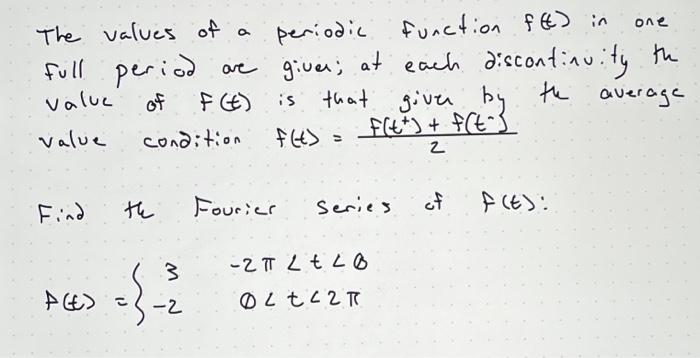 The values of a periodic function f(t) in one
full period are given; at each discontinuity the
value of f(t) is that given by the average
value condition f(t) = (f(t⁺) + f(t⁻)) / 2
Find the Fourier series of f(t):
f(t) = { 3   -2π < t < 0
-2   0 < t < 2π